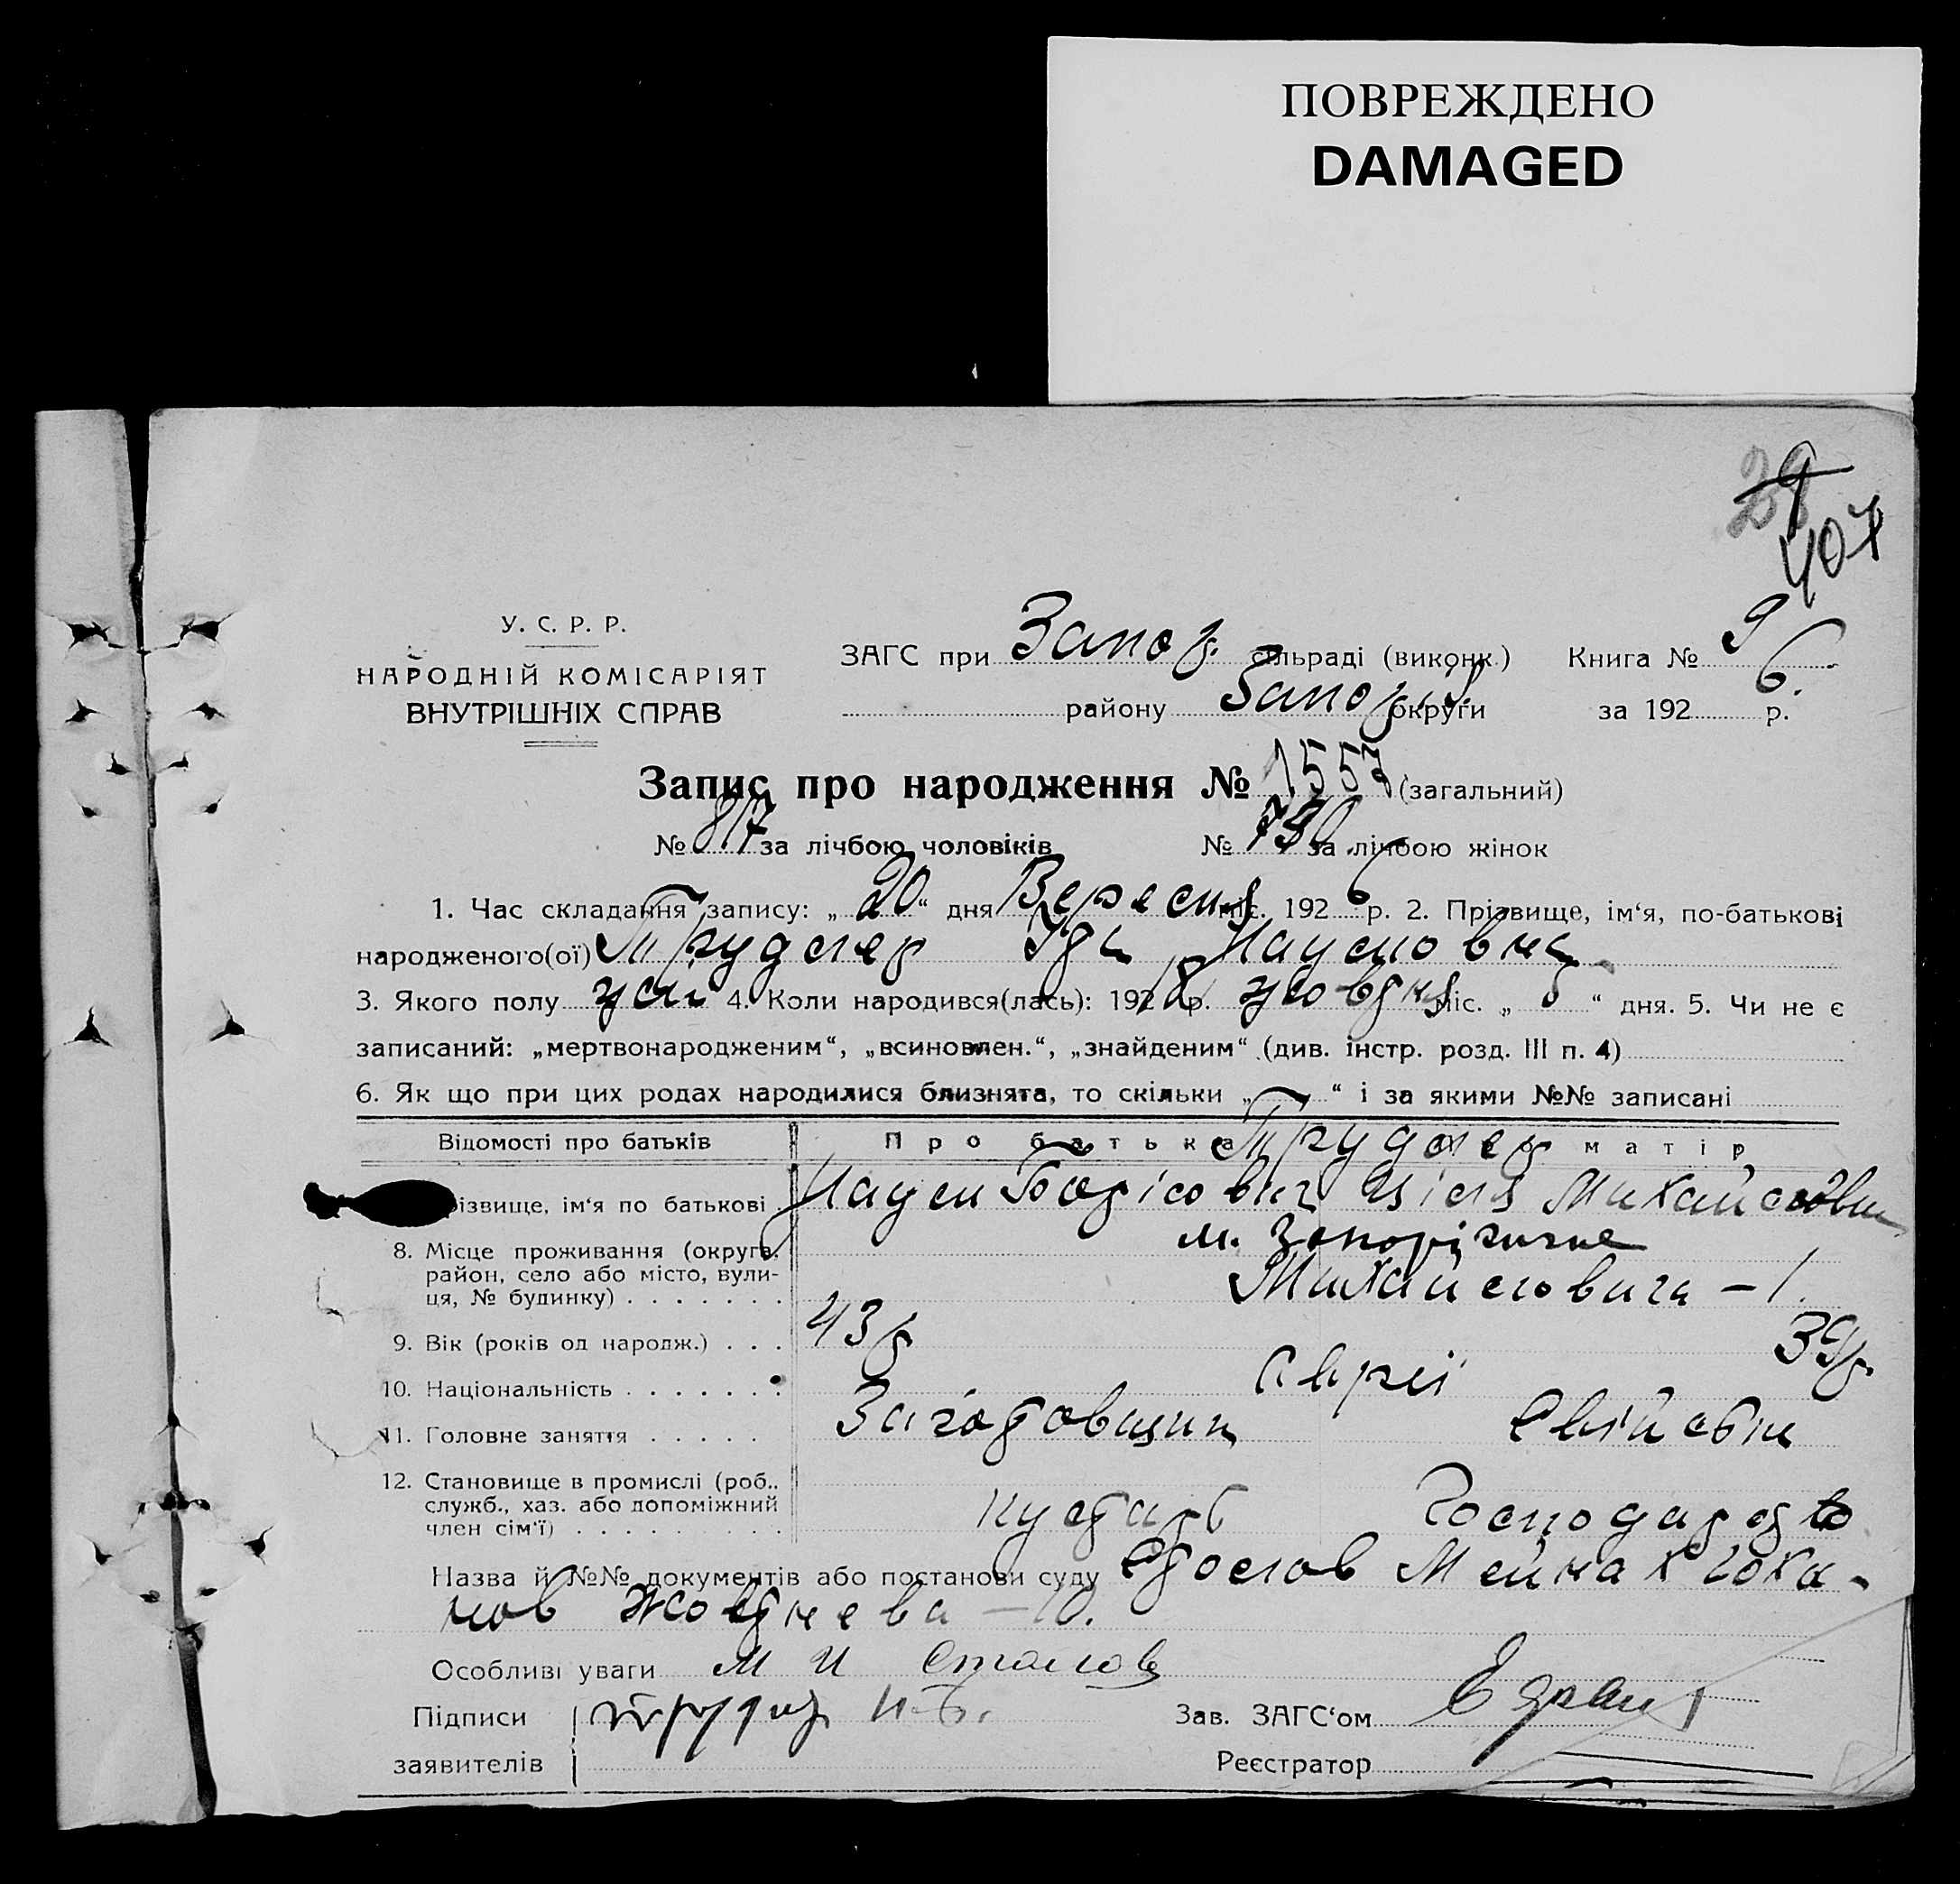 ПОВРЕЖДЕНО
DAMAGED
9
407
У. С. Р. Р.
НАРОДНІЙ КОМІСАРІЯТ
ВНУТРІШНІХ СПРАВ
ЗАГС при Запор. сільраді (виконк.) Книга № 9
району Запор округи за 192 6. р.
Запис про народження № 1557 (загальний)
№ 817 за лічбою чоловіків № за лічбою жінок
1. Час складання запису: „ 20 “ дня Вересня міс. 192 6 р. 2. Прізвище, ім‘я, по-батькові
народженого(ої) Трудлер Наумовна
3. Якого полу 4. Коли народився(лась): 192 р. жовтня міс. „ “ дня. 5. Чи не є
записаний: „мертвонародженим“, „всиновлен.“, „знайденим“ (див. інстр. розд. III п. 4)
6. Як що при цих родах народилися близнята, то скільки „ “ і за якими №№ записані
Відомості про батьків Про батька Трудлер матір
ізвище, ім‘я по батькові Наум Борісович Михайловна
8. Місце проживання (округа, м. Запоріжжє
район, село або місто, вули- Михайловича – 1.
ця, № будинку)
9. Вік (років од народж.) 43 р 39 р.
10. Національність Євреї
11. Головне заняття Заготовщик
12. Становище в промислі (роб.,
служб., хаз. або допоміжний Кустарь Господарств
член сім‘ї)
Назва й №№ документів або постанови суду
Жовтнева – 10.
Особливі уваги М И
Підписи Н. Б. Зав. ЗАГС‘ом
заявителів Реєстратор